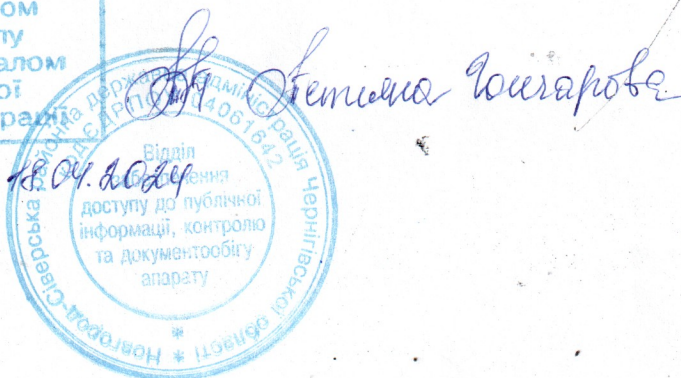 ом
ту
алом
ої
рації
Тетяна Гончарова
18.04.2024
Новгород-Сіверська районна державна адміністрація Чернігівської області *
КОД ЄДРПОУ 04061642
Відділ
забезпечення
доступу до публічної
інформації, контролю
та документообігу
апарату
*